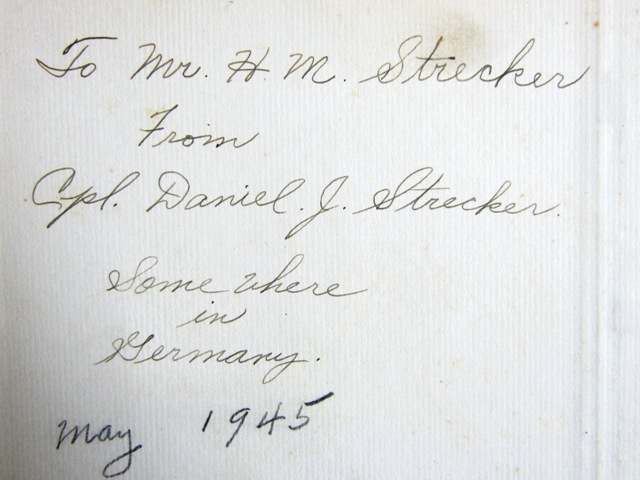 To Mr. H. M. Strecker
From
Cpl. Daniel. J. Strecker.
Some where
in
Germany.
May 1945